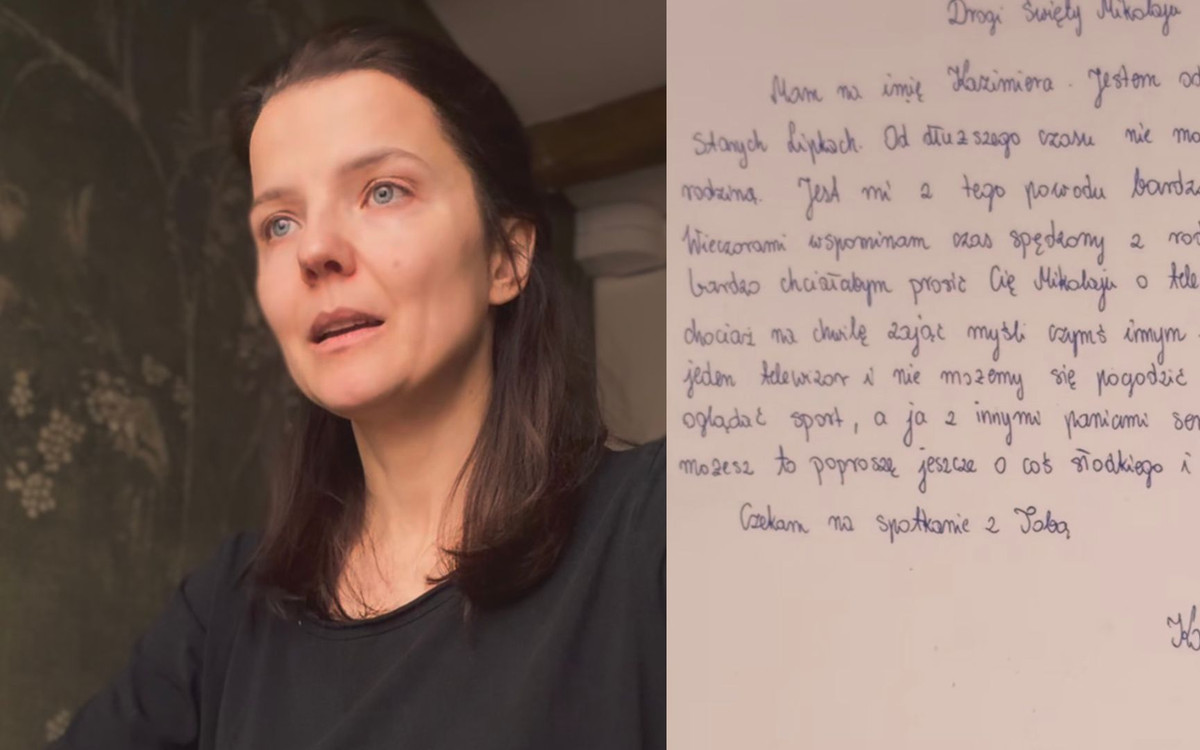 Drogi Święty Mikołaju
Mam na imię Kazimiera. Jestem od
Starych Lipkach. Od dłuższego czasu nie mo
rodziną. Jest mi z tego powodu bardz
Wieczorami wspominam czas spędzony z ro
bardzo chciałabym prosić Cię Mikołaju o tele
chociaż na chwilę zająć myśli czymś innym
jeden telewizor i nie możemy się pogodzić
oglądać sport, a ja z innymi paniami ser
możesz to poproszę jeszcze o coś słodkiego i
Czekam na spotkanie z Tobą
Ka